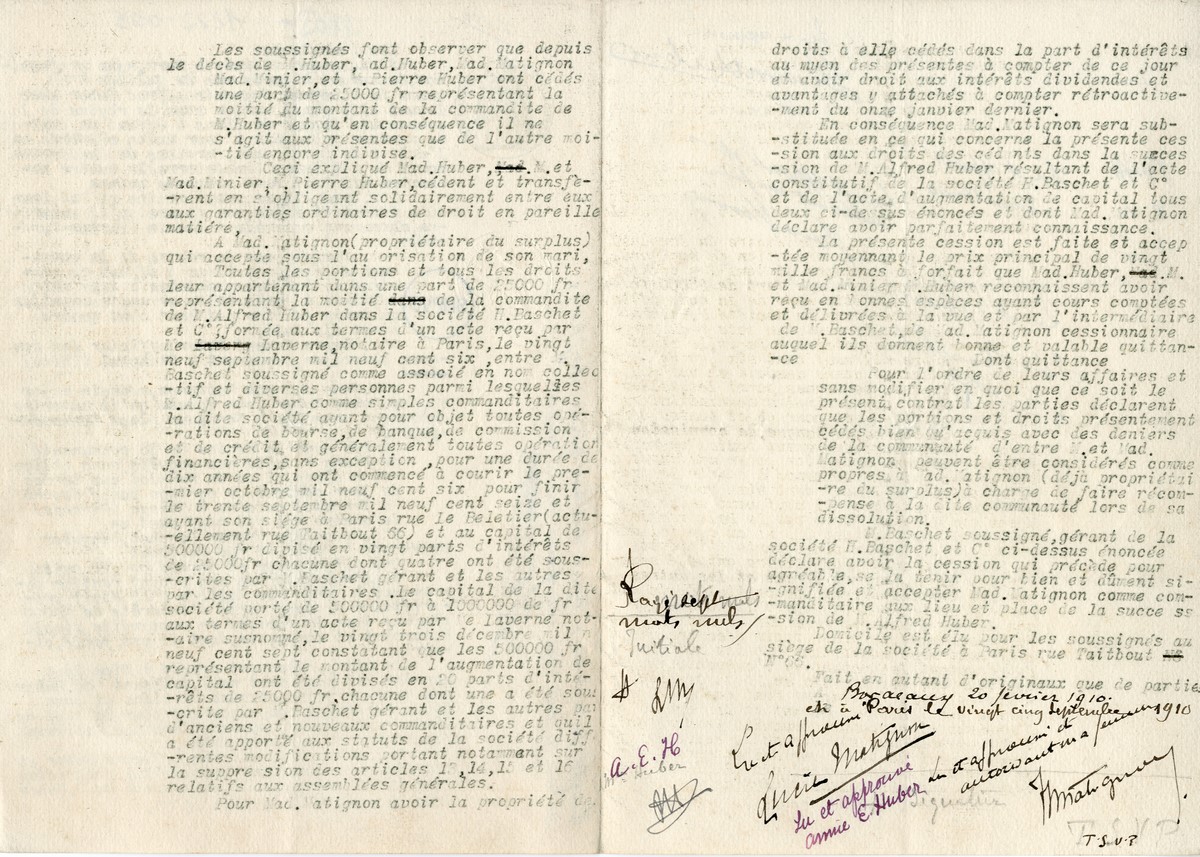 Les soussignés font observer que depuis
le décès de M.Huber,Mad.Huber,Mad.Matignon
Mad.Minier,et M.Pierre Huber ont cédés
une part de 25000 fr représentant la
moitié du montant de la commandite de
M.Huber et qu'en conséquence il ne
s'agit aux présentes que de l'autre moi-
-tié encore indivise.
Ceci expliqué Mad.Huber, Mad. M.et
Mad.Minier,M.Pierre Huber,cédent et transfè-
-rent en s'obligeant solidairement entre eux
aux garanties ordinaires de droit en pareille
matiére,
A Mad.Matignon(propriétaire du surplus)
qui accepte sous l'au orisation de son mari,
Toutes les portions et tous les droits
leur appartenant dans une part de 25000 fr
représentant la moitié dans de la commandite
de M.Alfred Huber dans la société H.Baschet
et C°,formée aux termes d'un acte reçu par
Me Laverng Laverne,notaire à Paris,le vingt
neuf septembre mil neuf cent six ,entre M.
Baschet soussigné comme associé en nom collec
-tif et diverses personnes parmi lesquelles
M.Alfred Huber comme simples commanditaires
la dite société ayant pour objet toutes opé-
-rations de bourse,de banque,de commission
et de crédit,et généralement toutes opération
financières,sans exception ,pour une durée de
dix années qui ont commencé à courir le pre-
-mier octobre mil neuf cent six pour finir
le trente septembre mil neuf cent seize et
ayant son siége à Paris rue le Peletier(actu-
-ellement rue Taitbout 66) et au capital de
500000 fr divisé en vingt parts d'intérêts
de 25000fr chacune dont quatre ont été sous-
-crites par M.Baschet gérant et les autres
par les commanditaires .Le capital de la dite
société porté de 500000 fr à 1000000 de fr
aux termes d'un acte reçu par e laverne not-
-aire susnommé,le vingt trois décembre mil n
neuf cent sept constatant que les 500000 fr
représentant le montant de l'augmentation de
capital ont été divisés en 20 parts d'inté-
-rêts de 25000 fr,chacune dont une a été sous
-crite par M.Baschet gérant et les autres par
d'anciens et nouveaux commanditaires et qu'il
a été apporté aux statuts de la société diff
-rentes modifications portant notamment sur
la suppre sion des articles 13,14,15 et 16
relatifs aux assemblées générales.
Pour Mad.Matignon avoir la propriété de
droits à elle cédés dans la part d'intérêts
au moyen des présentes à compter de ce jour
et avoir droit aux intérêts dividendes et
avantages y attachés à compter rétroactive-
-ment du onze janvier dernier.
En conséquence Mad.Matignon sera sub-
-stituée en ce qui concerne la présente ces
-sion aux droits des céd nts dans la succes
-sion de M.Alfred Huber résultant de l'acte
constitutif de la société H.Baschet et C°
et de l'acte d'augmentation de capital tous
deux ci-de sus énoncés et dont Mad.Matignon
déclare avoir parfaitement connaissance.
La présente cession est faite et accep
-tée moyennant le prix principal de vingt
mille francs à forfait que Mad.Huber, Mad. M.
et Mad.Minier M.Huber reconnaissent avoir
reçu en bonnes espèces ayant cours comptées
et délivrées à la vue et par l'intermédiaire
de M.Baschet,de Mad.Matignon cessionnaire
auquel ils donnent bonne et valable quittan-
-ce Dont quittance
Pour l'ordre de leurs affaires et
sans modifier en quoi que ce soit le
présent contrat les parties déclarent
que les portions et droits présentement
cédés bien qu'acquis avec des deniers
de la communauté d'entre M.et Mad.
Matignon peuvent être considérés comme
propres à Mad.Matignon (déjà propriétai
-re du surplus)à charge de faire récom-
-pense à la dite communauté lors de sa
dissolution.
M.Baschet soussigné,gérant de la
société H.Baschet et C° ci-dessus énoncée
déclare avoir la cession qui précède pour
agréable,se la tenir pour bien et dûment si-
-gnifiée et accepter Mad.Matignon comme com-
-manditaire aux lieu et place de la succe ss
-sion de M.Alfred Huber.
Domicile est élu pour les soussignés au
siége de la société à Paris rue Taitbout
N°66.
Fait en autant d'originaux que de partie
Rayé sept
mots nuls
Initiale
LM
A. E. H
Huber
20 février 1910.
et à Paris le vingt cinq septembre 1910
Lu et approuvé
Lucie Matignon
Lu et approuvé et
autorisant ma femme
Matignon
Lu et approuvé
annie E. Huber
Signature
T S V P
T.S.V.P